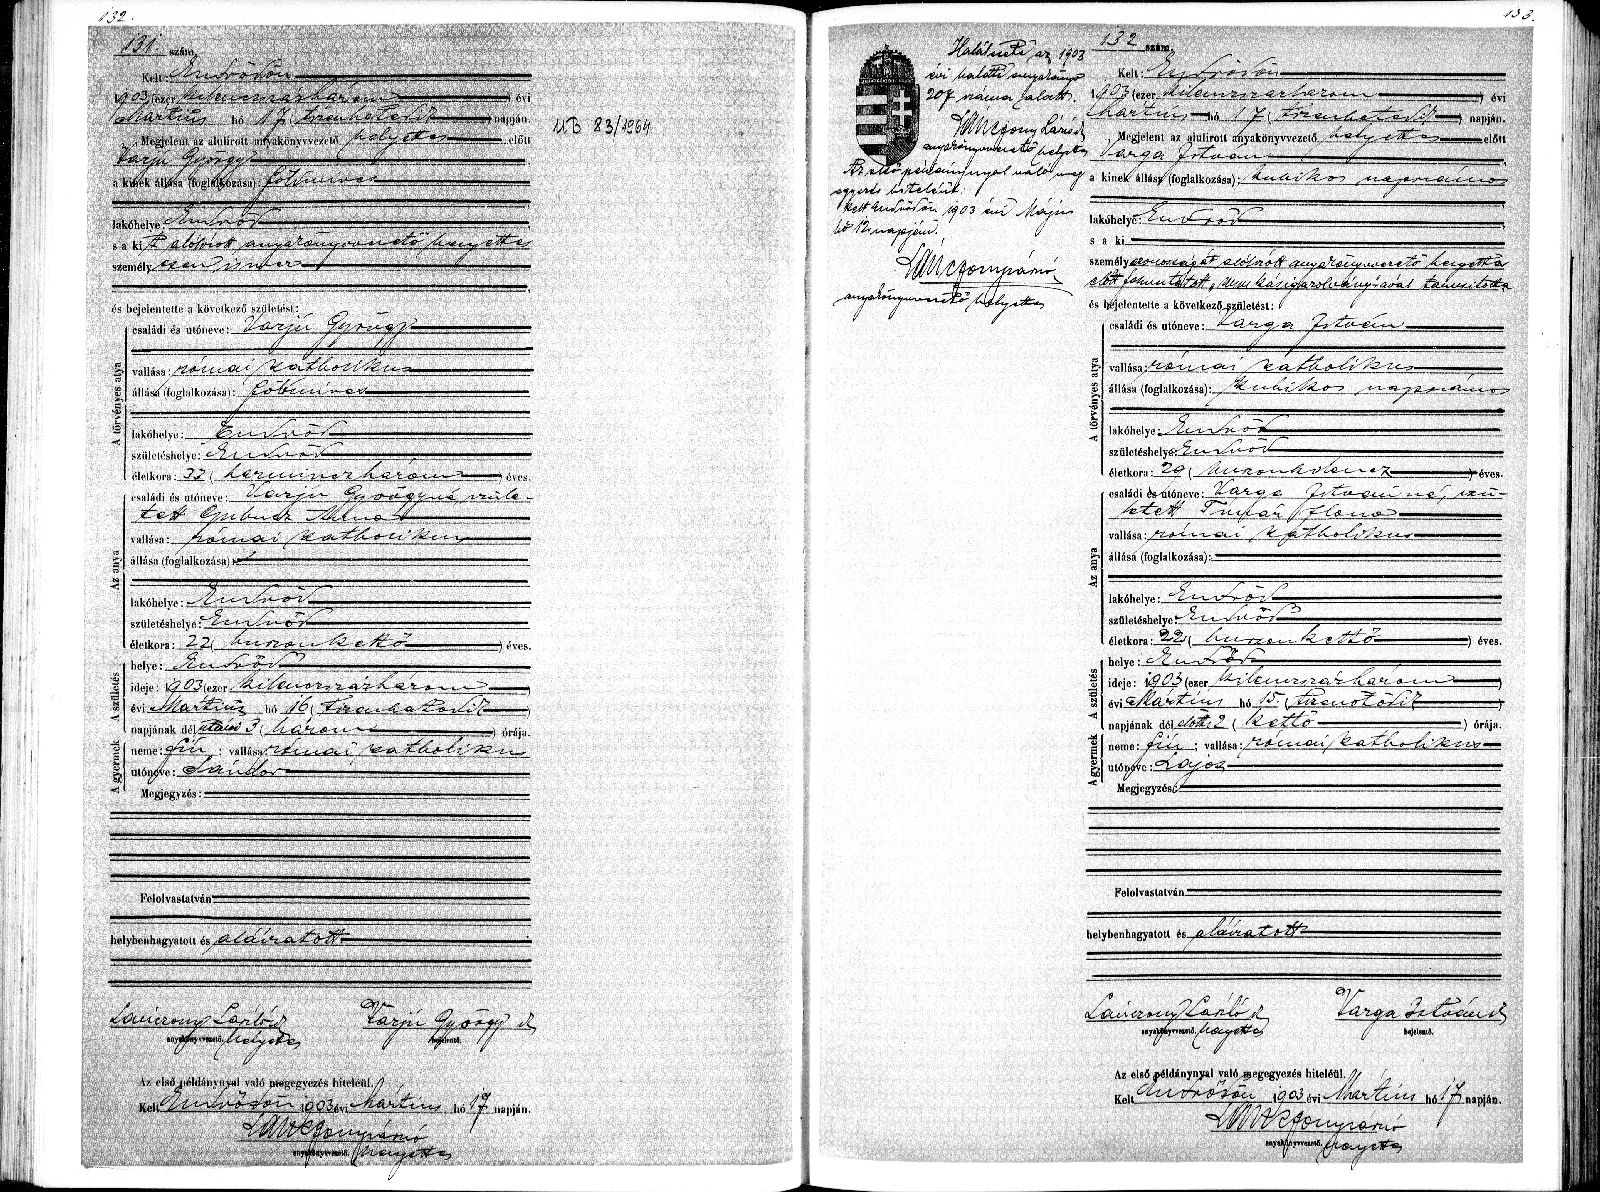 132.
131. szám.
Kelt: Endrődön
1903 (ezer kilenczszázhárom ) évi
Martius hó 17 ( tizenhetedik ) napján.
Megjelent az alulirott anyakönyvvezető helyettes előtt
Varjú György
a kinek állása (foglalkozása): földmíves
lakóhelye: Endrőd
s a ki t alólírott anyakönyvvezető helyettes
személyesen ismer
és bejelentette a következő születést:
A törvényes atya
családi és utóneve: Varjú György
vallása: római katholikus
állása (foglalkozása): földmíves
lakóhelye: Endrőd
születéshelye: Endrőd
életkora: 33 ( harminczhárom ) éves.
Az anya
családi és utóneve: Varjú Györgyné, szüle-
tett
vallása: római katholikus
állása (foglalkozása):
lakóhelye: Endrőd
születéshelye: Endrőd
életkora: 22 ( huszonkettő ) éves.
A születés
helye: Endrőd
ideje: 1903 (ezer kilenczszázhárom )
évi Martius hó 16 ( tizenhatodik )
napjának dél utáni 3 ( három ) órája.
A gyermek
neme: fiú ; vallása: római katholikus
utóneve: Sándor
Megjegyzés:
Felolvastatván
helybenhagyatott és aláiratott
Lánczony László
anyakönyvvezető. helyettes
Varjú György
bejelentő.
Az első példánynyal való megegyezés hiteléül.
Kelt Endrődön 1903 évi Martius hó 17 napján.
anyakönyvvezető. helyettes
UB 83/1964
133.
Halálneti az 1903
évi halotti anyakönyv
207 száma alatt.
anyakönyvvezető helyettes
Az első példánynyal való meg
egyezés hiteléül.
Kelt Endrődön 1903 évi Május
hó 12 napján.
anyakönyvvezető helyettes
132 szám.
Kelt: Endrődön
1903 (ezer kilenczszázhárom ) évi
Martius hó 17 ( tizenhetedik ) napján.
Megjelent az alulirott anyakönyvvezető helyettes előtt
Varga István
a kinek állása (foglalkozása): kubikos napszámos
lakóhelye: Endrőd
s a ki
személyazonosságát alólírott anyakönyvvezető helyettes
előtt felmutatott, munkásigazolványával tanusította
és bejelentette a következő születést:
A törvényes atya
családi és utóneve: Varga István
vallása: római katholikus
állása (foglalkozása): kubikos napszámos
lakóhelye: Endrőd
születéshelye: Endrőd
életkora: 29 ( huszonkilencz ) éves.
Az anya
családi és utóneve: Varga Istvánné, szü-
letett Timár Ilona
vallása: római katholikus
állása (foglalkozása):
lakóhelye: Endrőd
születéshelye: Endrőd
életkora: 22 ( huszonkettő ) éves.
A születés
helye: Endrőd
ideje: 1903 (ezer kilenczszázhárom )
évi Martius hó 15. ( tizenötödik )
napjának dél előtti 2 ( kettő ) órája.
A gyermek
neme: fiú ; vallása: római katholikus
utóneve: Lajos
Megjegyzés:
Felolvastatván
helybenhagyatott és aláiratott
Lánczony László
anyakönyvvezető. helyettes
Varga István
bejelentő.
Az első példánynyal való megegyezés hiteléül.
Kelt Endrődön 1903 évi Martius hó 17 napján.
anyakönyvvezető. helyettes